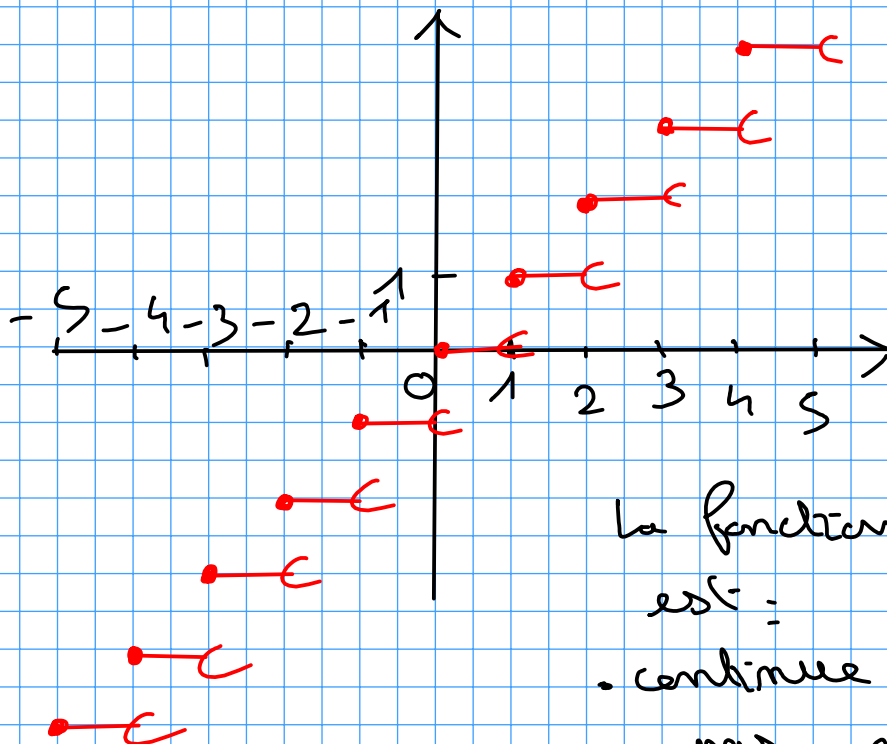 1
-5 -4 -3 -2 -1
0 1 2 3 4 5
la fonction
est :
• continue